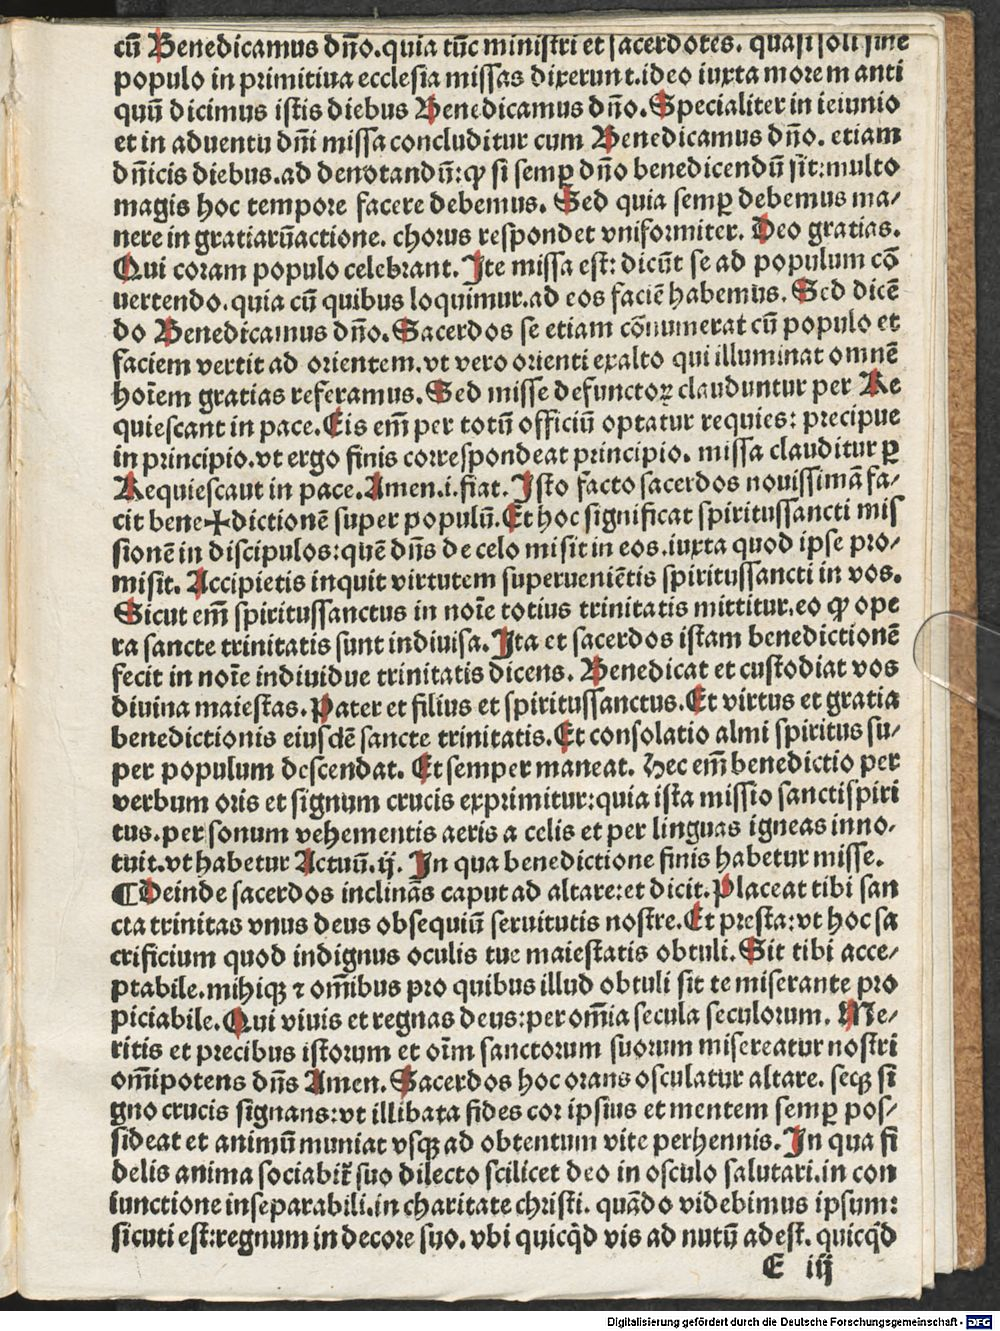 cū Benedicamus dño.quia tūc ministri et sacerdotes. quasi soli sine
populo in primitiua ecclesia missas dixerunt.ideo iuxta morem anti
quū dicimus istis diebus Benedicamus dño. Specialiter in ieiunio
et in aduentu dñi missa concluditur cum Benedicamus dño. etiam
dñicis diebus.ad denotandū:ꝙ si semꝑ dño benedicendū sit:multo
magis hoc tempore facere debemus. Sed quia semꝑ debemus ma/
nere in gratiarūactione. chorus respondet vniformiter. Deo gratias.
Qui coram populo celebrant. Ite missa est: dicūt se ad populum cō
uertendo.quia cū quibus loquimur.ad eos faciē habemus. Sed dicē
do Benedicamus dño. Sacerdos se etiam cōnumerat cū populo et
faciem vertit ad orientem.vt vero orienti exalto qui illuminat omnē
hoīem gratias referamus. Sed misse defunctoꝝ clauduntur per Re
quiescant in pace. Eis em̄ per totū officiū optatur requies: precipue
in principio.vt ergo finis correspondeat principio. missa clauditur ꝑ
Requiescaut in pace. Amen.i.fiat. Isto facto sacerdos nouissimā fa/
cit bene✠dictionē super populū. Et hoc significat spiritussancti mis
sionē in discipulos:quē dñs de celo misit in eos.iuxta quod ipse pro/
misit. Accipietis inquit virtutem superueniētis spiritussancti in vos.
Sicut em̄ spiritussanctus in noīe totius trinitatis mittitur.eo ꝙ ope
ra sancte trinitatis sunt indiuisa. Ita et sacerdos istam benedictionē
fecit in noīe indiuidue trinitatis dicens. Benedicat et custodiat vos
diuina maiestas. Pater et filius et spiritussanctus. Et virtus et gratia
benedictionis eiusdē sancte trinitatis. Et consolatio almi spiritus su/
per populum descendat. Et semper maneat. Hec em̄ benedictio per
verbum oris et signum crucis exprimitur:quia ista missio sanctispiri
tus.per sonum vehementis aeris a celis et per linguas igneas inno/
tuit.vt habetur Actuū.ij. In qua benedictione finis habetur misse.
¶Deinde sacerdos inclinās caput ad altare:et dicit. Placeat tibi san
cta trinitas vnus deus obsequiū seruitutis nostre. Et presta:vt hoc sa
crificium quod indignus oculis tue maiestatis obtuli. Sit tibi acce/
ptabile.mihiqꝫ ⁊ om̄ibus pro quibus illud obtuli sit te miserante pro
piciabile. Qui viuis et regnas deus:per om̄ia secula seculorum. Me/
ritis et precibus istorum et oīm sanctorum suorum misereatur nostri
om̄ipotens dñs Amen. Sacerdos hoc orans osculatur altare. seqꝫ si
gno crucis signans:vt illibata fides cor ipsius et mentem semꝑ pos/
sideat et animū muniat vsqꝫ ad obtentum vite perhennis. In qua fi
delis anima sociabit̄ suo dilecto scilicet deo in osculo salutari.in con
iunctione inseparabili.in charitate christi. quādo videbimus ipsum:
sicuti est:regnum in decore suo. vbi quicq̇d vis ad nutū adest. quicq̇d
E iij
Digitalisierung gefördert durch die Deutsche Forschungsgemeinschaft - DFG